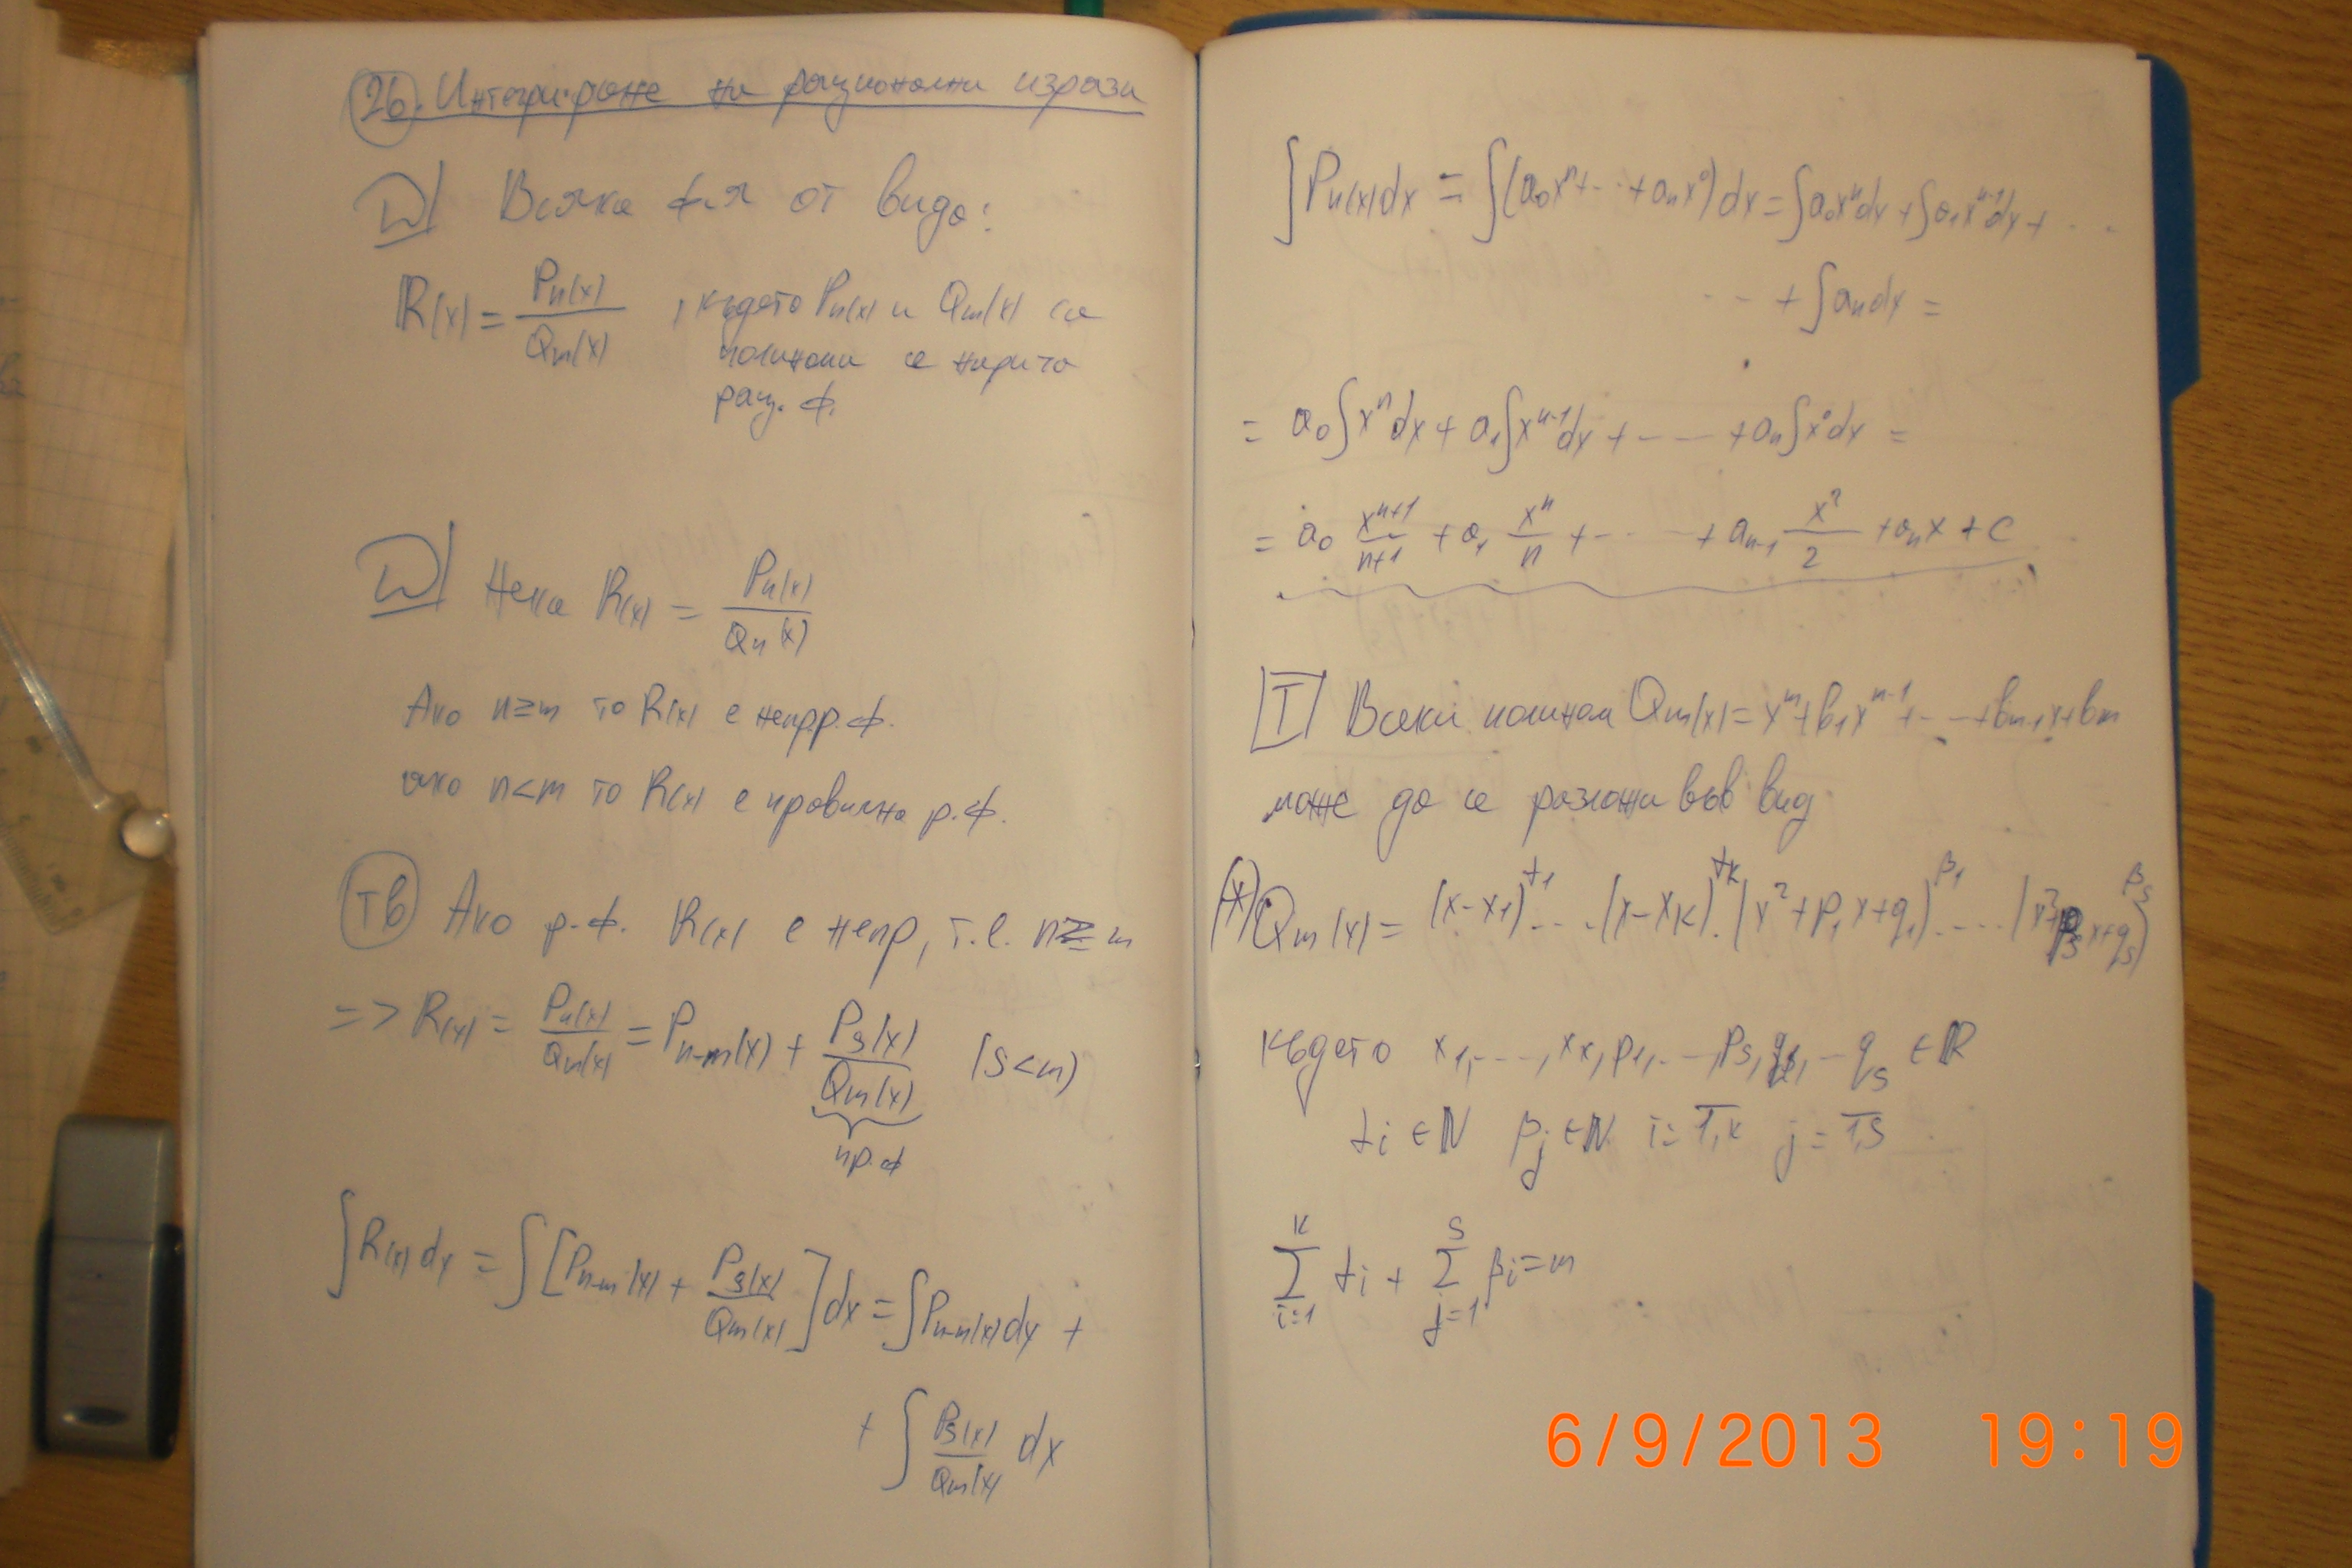 26. Интегриране на рационални изрази
D| Всяка ф-я от вида:
R(x) = Pn(x)/Qm(x), където Pn(x) и Qm(x) са
полиноми се нарича
рац. ф.
D| Нека R(x) = Pn(x)/Qn(x)
Ако n≥m то R(x) е непр р.ф.
ако n<m то R(x) е правилна р.ф.
Тв Ако р.ф. R(x) е непр, т.е. n≥m
=> R(x) = Pn(x)/Qm(x) = Pn-m(x) + Ps(x)/Qm(x) (s<m)
пр.ф
∫R(x)dx = ∫[Pn-m(x) + Ps(x)/Qm(x)]dx = ∫Pn-m(x)dx +
+ ∫Ps(x)/Qm(x) dx
∫Pn(x)dx = ∫(a₀xⁿ+...+aₙx⁰)dx = ∫a₀xⁿdx + ∫a₁xⁿ⁻¹dx + ...
... + ∫aₙdx =
= a₀∫xⁿdx + a₁∫xⁿ⁻¹dx + ... + aₙ∫x⁰dx =
= a₀ xⁿ⁺¹/(n+1) + a₁ xⁿ/n + ... + aₙ₋₁ x²/2 + aₙx + c
T Всеки полином Qm(x) = xᵐ+b₁xⁿ⁻¹+...+bm-1x+bm
може да се разложи във вид
(*) Qm(x) = (x-x₁)^α₁...(x-xk)^αk.(x²+p₁x+q₁)^β₁....(x²+psx+qs)^βs
където x₁,...,xk, p₁,...,ps, q₁,...qs ∈ ℝ
αi ∈ N βj ∈ N i = 1,k j = 1,s
∑ᵢ₌₁ᵏ αi + ∑ⱼ₌₁ˢ βi = m
6/9/2013 19:19